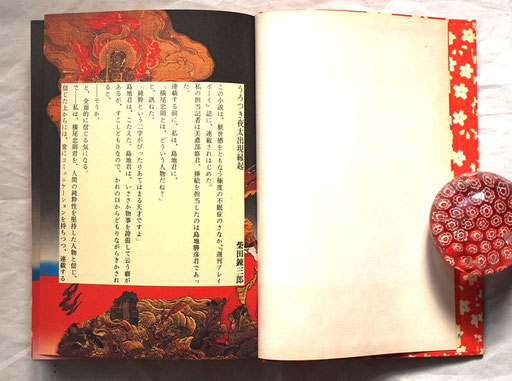 うろつき夜太出現縁起
柴田錬三郎
この小説は、厭世感をともなう極度の不眠症のさなか、『週刊プレイ
ボーイ』誌に、連載されはじめた。
私の担当記者は美濃部修君、挿絵を担当したのは島地勝彦君であっ
た。
連載する前に、私は、島地君に、
「横尾忠則とは、どういう人物だね？」
と、訊ねた。
「純粋という二字がぴったりあてはまる天才ですよ」
島地君は、こたえた。島地君は、いささか物事を誇張して云う癖が
あるが、すこしどもりなので、かれの口からどもりながらきかされ
ると、
――そうか。
と、全面的に信じる気になる。
で――私は、横尾忠則君を、人間の純粋性を堅持した人物と信じ、
信じた上からには、常にコミュニケーションを持ちつつ、連載する